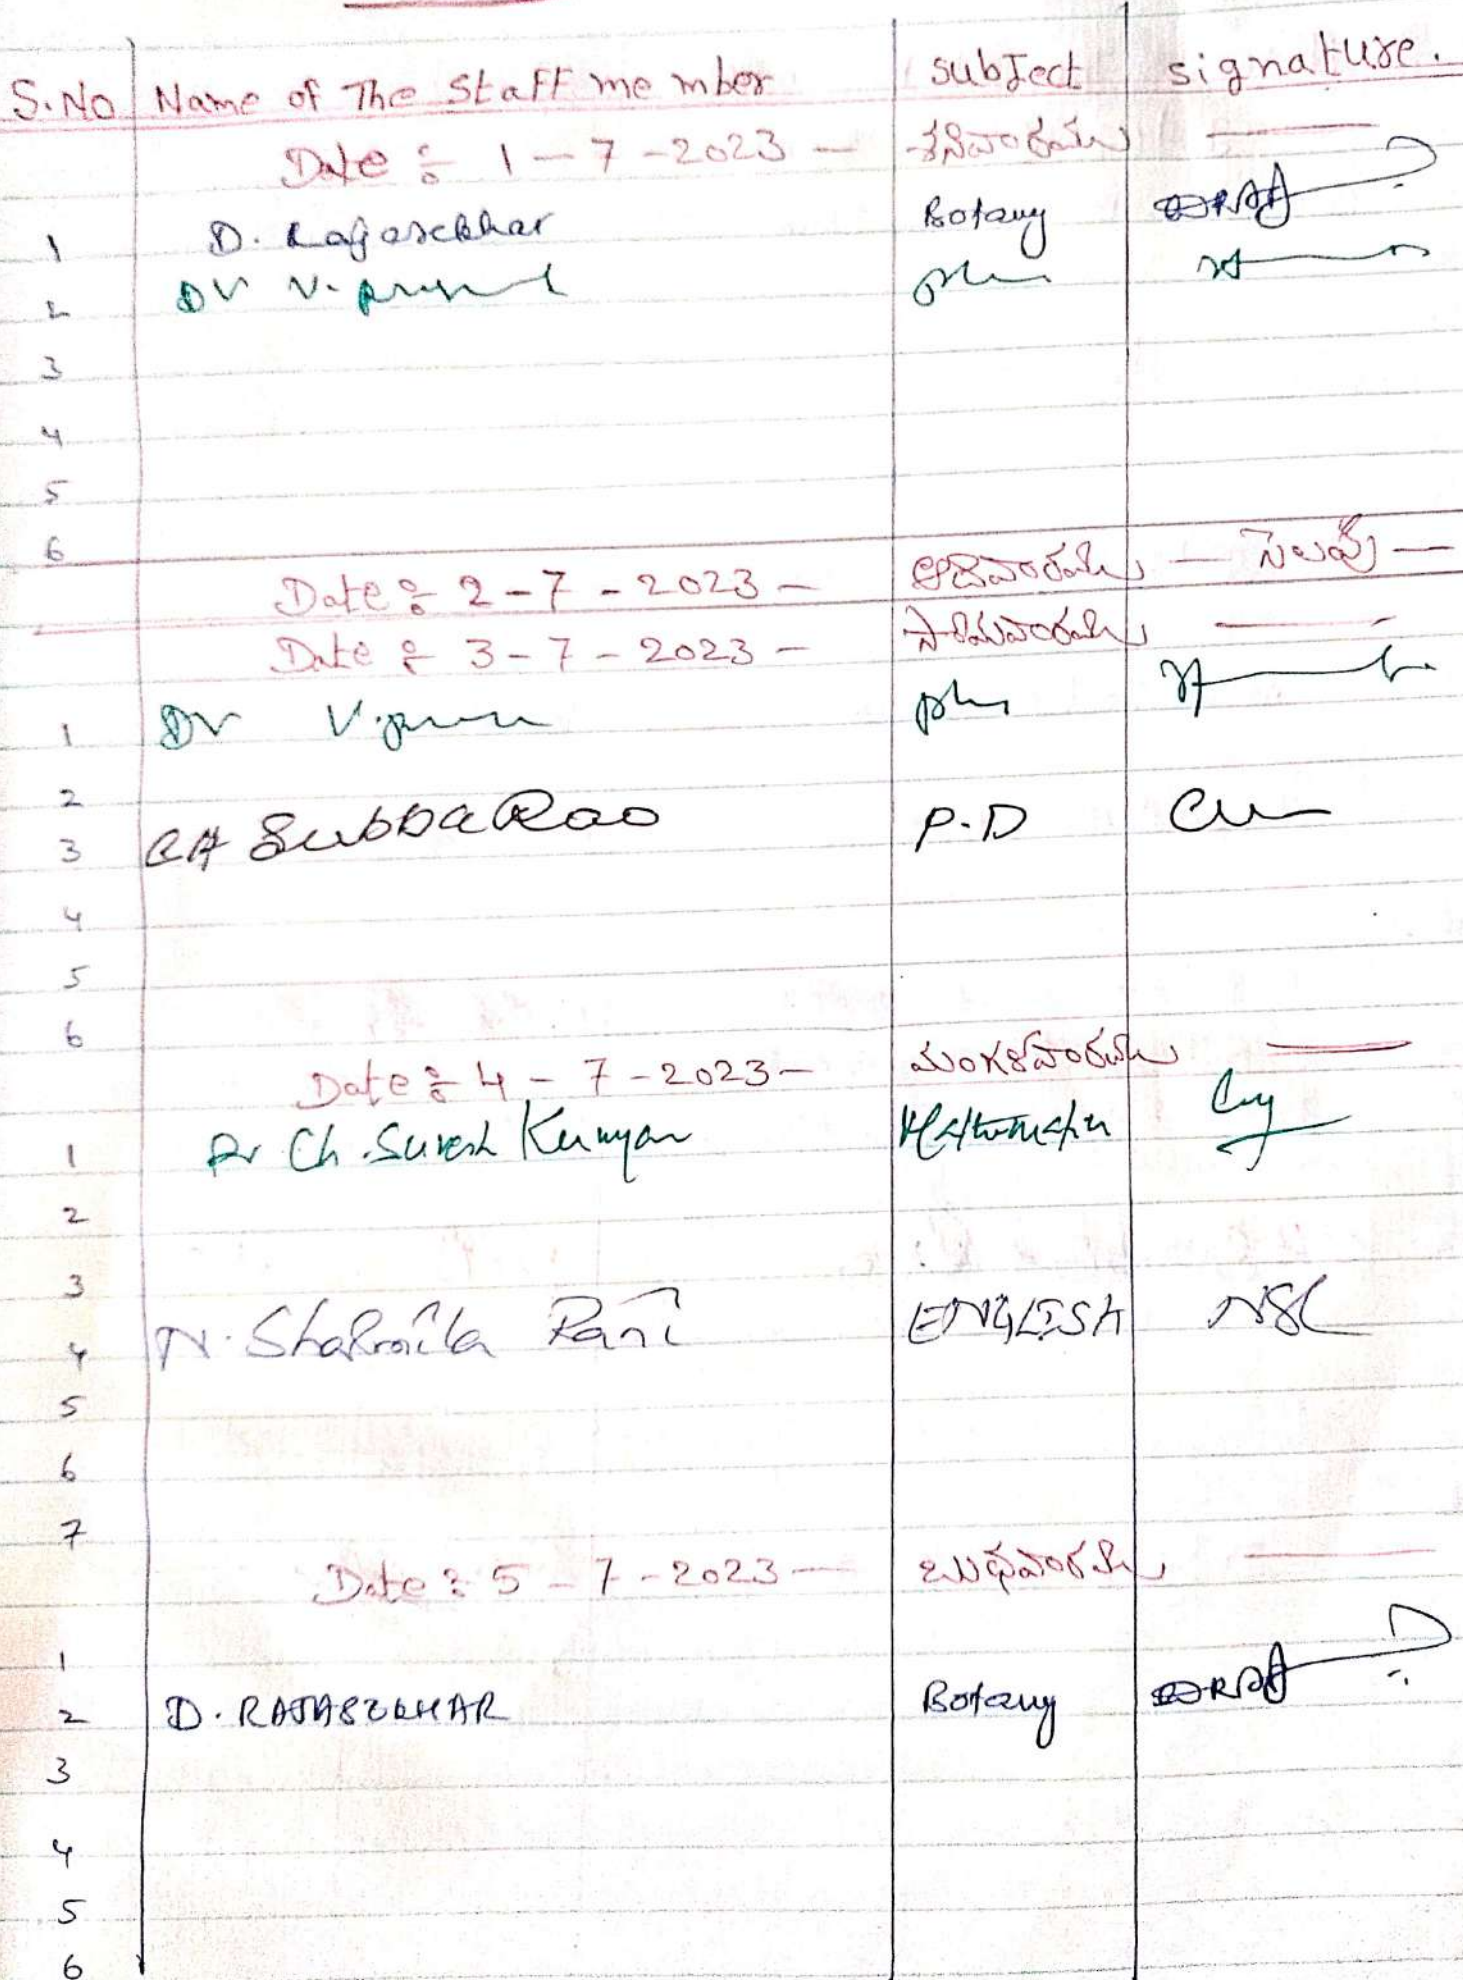 S.No Name of The Staff member subJect signature.
Date : 1 - 7 - 2023 - శనివారము
1 D. Rajasekhar Botany
2 Dr V.
3
4
5
6
Date : 2 - 7 - 2023 - ఆదివారము - సెలవు -
Date : 3 - 7 - 2023 - సోమవారము
1 Dr V.
2
3 CH SubbaRao P.D
4
5
6
Date : 4 - 7 - 2023 - మంగళవారము
1 Dr Ch. Suresh Kumar
2
3
4 N. Sharmila Rani ENGLISH
5
6
7
Date : 5 - 7 - 2023 - బుధవారము
1
2 D. RAJASEKHAR Botany
3
4
5
6